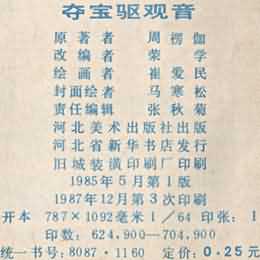 夺宝驱观音
原著者 周楞伽
改编者 荣学
绘画者 崔爱民
封面绘者 马寒松
责任编辑 张秋菊
河北美术出版社出版
河北省新华书店发行
旧城装潢印刷厂印刷
1985年5月第1版
1987年12月第3次印刷
开本 787×1092毫米 1/64 印张: 1
印数: 624,900—704,900
统一书号: 8087·1160 定价: 0.25元